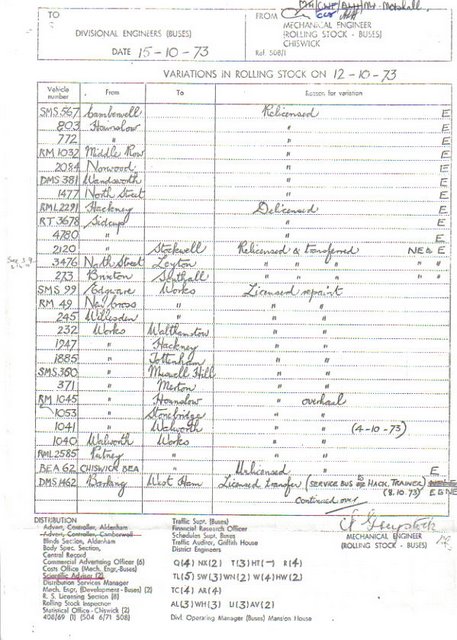 TO
DIVISIONAL ENGINEERS (BUSES)
DATE 15-10-73
FROM
MECHANICAL ENGINEER
(ROLLING STOCK - BUSES)
CHISWICK
Ref. 508/1
VARIATIONS IN ROLLING STOCK ON 12-10-73
Vehicle number From To Reason for variation
SMS 567 Camberwell Relicensed E
803 Hounslow " E
772 " " E
RM 1032 Middle Row " E
2084 Norwood " E
DMS 381 Wandsworth " E
1477 North Street " E
RML 2291 Hackney Delicensed E
RT 3678 Sidcup " E
4780 " " E
2120 " Stockwell Relicensed & transferred NE & E
3476 North Street Leyton " " " " "
273 Brixton Southall " " " " "
SMS 99 Edgware Works Licensed repaint
RM 49 New Cross " " "
245 Willesden " " "
232 Works Walthamstow " "
1947 " Hackney " "
1885 " Tottenham " "
SMS 360 " Muswell Hill " "
371 " Merton " "
RM 1045 " Hounslow " overhaul
1053 " Stonebridge " "
1041 " Walworth " " (4-10-73)
1040 Walworth Works " "
RML 2585 Putney " " "
BEA 62 CHISWICK BEA Unlicensed E
DMS 1462 Barking West Ham Licensed transfer (SERVICE BUS to HACK. TRAINER) E & NE
(8.10.73)
Continued over
MECHANICAL ENGINEER
(ROLLING STOCK - BUSES)
DISTRIBUTION
Advert. Controller, Aldenham
Advert. Controller, Camberwell
Blinds Section, Aldenham
Body Spec. Section,
Central Record
Commercial Advertising Officer (6)
Costs Office (Mech. Engr.-Buses)
Scientific Adviser (2)
Distribution Services Manager
Mech. Engr. (Development - Buses) (2)
R. S. Licensing Section (6)
Rolling Stock Inspection
Statistical Office - Chiswick (2)
408/69 (1) (504 6/71 508)
Traffic Supt. (Buses)
Financial Research Officer
Schedules Supt. Buses
Traffic Auditor, Griffith House
District Engineers
Q(4) NX(2) T(3) HT(-) R(4)
TL(5) SW(3) WN(2) W(4) HW(2)
TC(4) AR(4)
AL(3) WH(3) U(3) AV(2)
Divl. Operating Manager (Buses) Mansion House